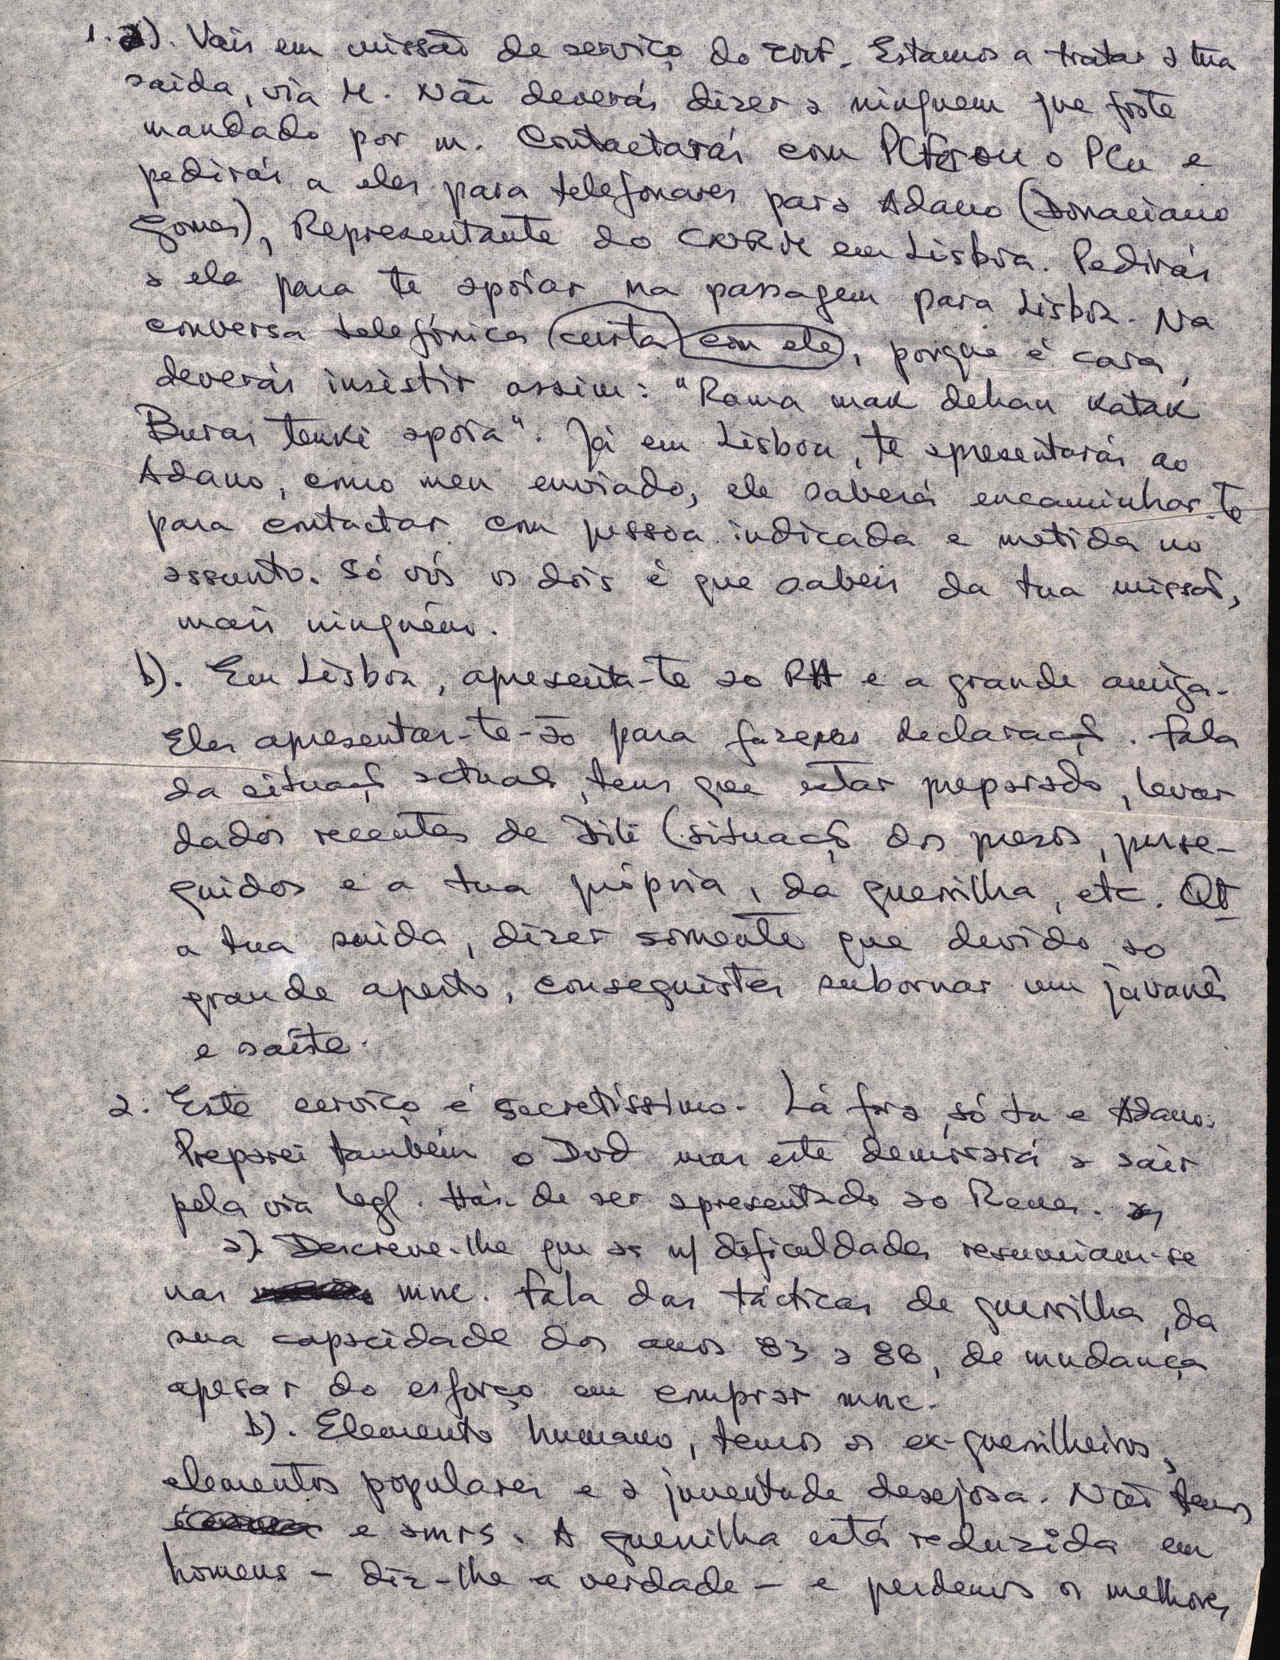 1. a). Vais em missão de serviço do EMF. Estamos a tratar a tua
saída, via M. Não deverás dizer a ninguem que foste
mandado por m. Contactarás com PC ou o PCn e
pedirás a eles para telefonares para Adano (Donaciano
Gomes), Representante do CNRM em Lisboa. Pedirás
a ele para te apoiar na passagem para Lisboa. Na
conversa telefónica (curta) com ele, porque é cara,
deverás insistir assim: "Rama mak dehan katak
Buras tenki apoia". Já em Lisboa, te apresentarás ao
Adano, como meu enviado, ele saberá encaminhar-te
para contactar com pessoa indicada e metida no
assunto. Só vós os dois é que sabeis da tua missão,
mais ninguém.
b). Em Lisboa, apresenta-te ao RH e a grande amiga.
Eles apresentar-te-ão para fazeres declaraçõ. Fala
da situaçõ actual, tens que estar preparado, levar
dados recentes de Dili (situaçõ dos presos, perse-
guidos e a tua própria, da guerrilha, etc. Qt
a tua saída, dizer somente que devido ao
grande aperto, conseguistes subornar um javanês
e saíste.
2. Este serviço é secretíssimo. Lá fora, só tu e Adano.
Preparei também o Dvd mas este demorará a sair
pela via legl. Hás-de ser apresentado ao Rama.
a). Descreve-lhe que as n/ dificuldades resumiam-se
nas mnc. Fala das tácticas de guerrilha, da
sua capacidade dos anos 83 a 86, de mudança
apesar do esforço em comprar mnc.
b). Elemento humano, temos os ex-guerrilheiros,
elementos populares e a juventude desejosa. Não temos
e amrs. A guerrilha está reduzida em
homens - diz-lhe a verdade - e perdemos os melhores